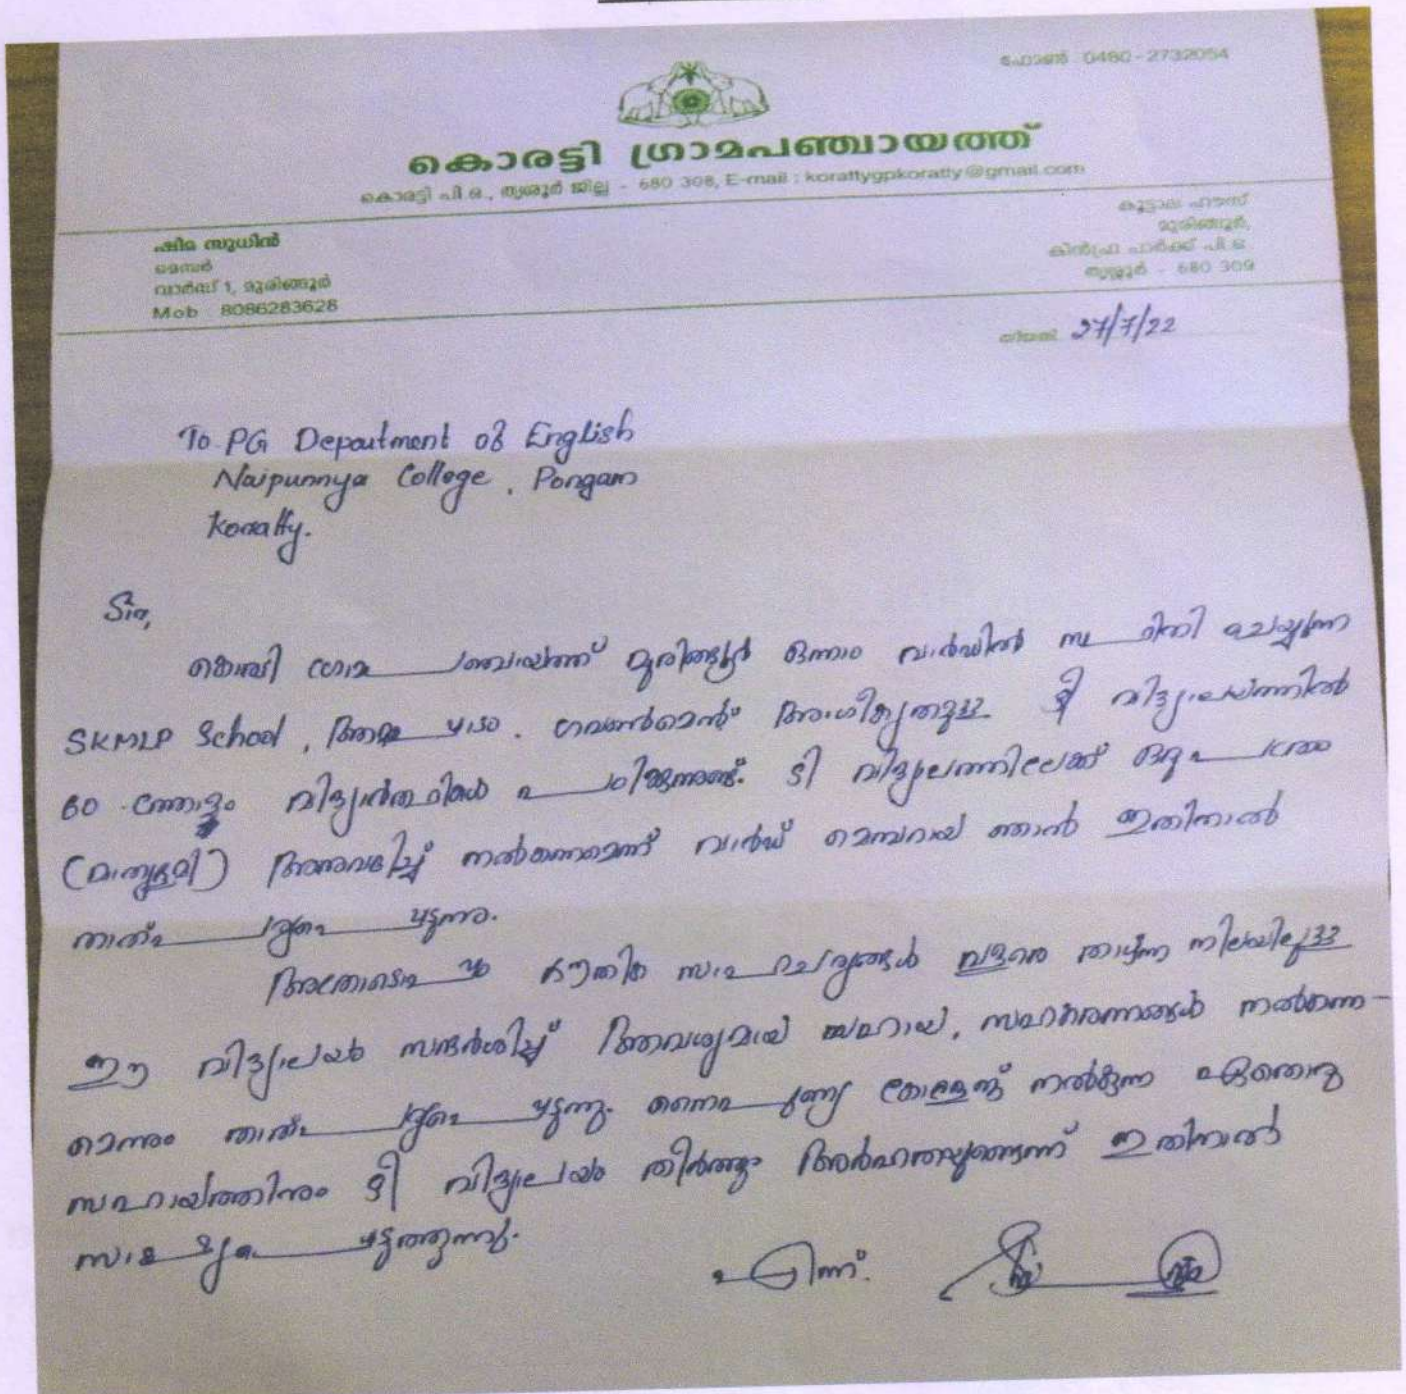 ഫോൺ : 0480-2732054
കൊരട്ടി ഗ്രാമപഞ്ചായത്ത്
കൊരട്ടി പി.ഒ., തൃശ്ശൂർ ജില്ല - 680 308, E-mail : korattygpkoratty@gmail.com
ഷിമ സുധിൻ
മെമ്പർ
വാർഡ് 1, മുരിങ്ങൂർ
Mob 8086283628
കൂട്ടാല ഹൗസ്
മുരിങ്ങൂർ,
കിൻഫ്ര പാർക്ക് പി.ഒ
തൃശ്ശൂർ - 680 309
തിയതി 27/7/22
To PG Department of English
Naipunnya College, Pongam
Koratty.
Sir,
കൊരട്ടി ഗ്രാമ പഞ്ചായത്ത് മുരിങ്ങൂർ ഒന്നാം വാർഡിൽ സ്ഥിതി ചെയ്യുന്ന
SKMLP School, ഗവൺമെന്റ് അംഗീകൃതമുള്ള ടി വിദ്യാലയത്തിൽ
60 ത്തോളം വിദ്യാർത്ഥികൾ പഠിക്കുന്നുണ്ട്. ടി വിദ്യാലത്തിലേക്ക് ഒരു പത്രം
(മാതൃഭൂമി) അനുവദിച്ച് നൽകണമെന്ന് വാർഡ് മെമ്പറായ ഞാൻ ഇതിനാൽ
താത്പര്യപ്പെടുന്നു.
അതോടൊപ്പം ഭൗതിക സാഹചര്യങ്ങൾ വളരെ താഴ്ന്ന നിലയിലുള്ള
ഈ വിദ്യാലയം സന്ദർശിച്ച് ആവശ്യമായ സഹായ, സഹകരണങ്ങൾ നൽകണ-
മെന്നും താത്പര്യപ്പെടുന്നു. നൈപുണ്യ കോളേജ് നൽകുന്ന ഏതൊരു
സഹായത്തിനും ടി വിദ്യാലയം തീർത്തും അർഹതയുണ്ടെന്ന് ഇതിനാൽ
സാക്ഷ്യപ്പെടുത്തുന്നു.
എന്ന്.